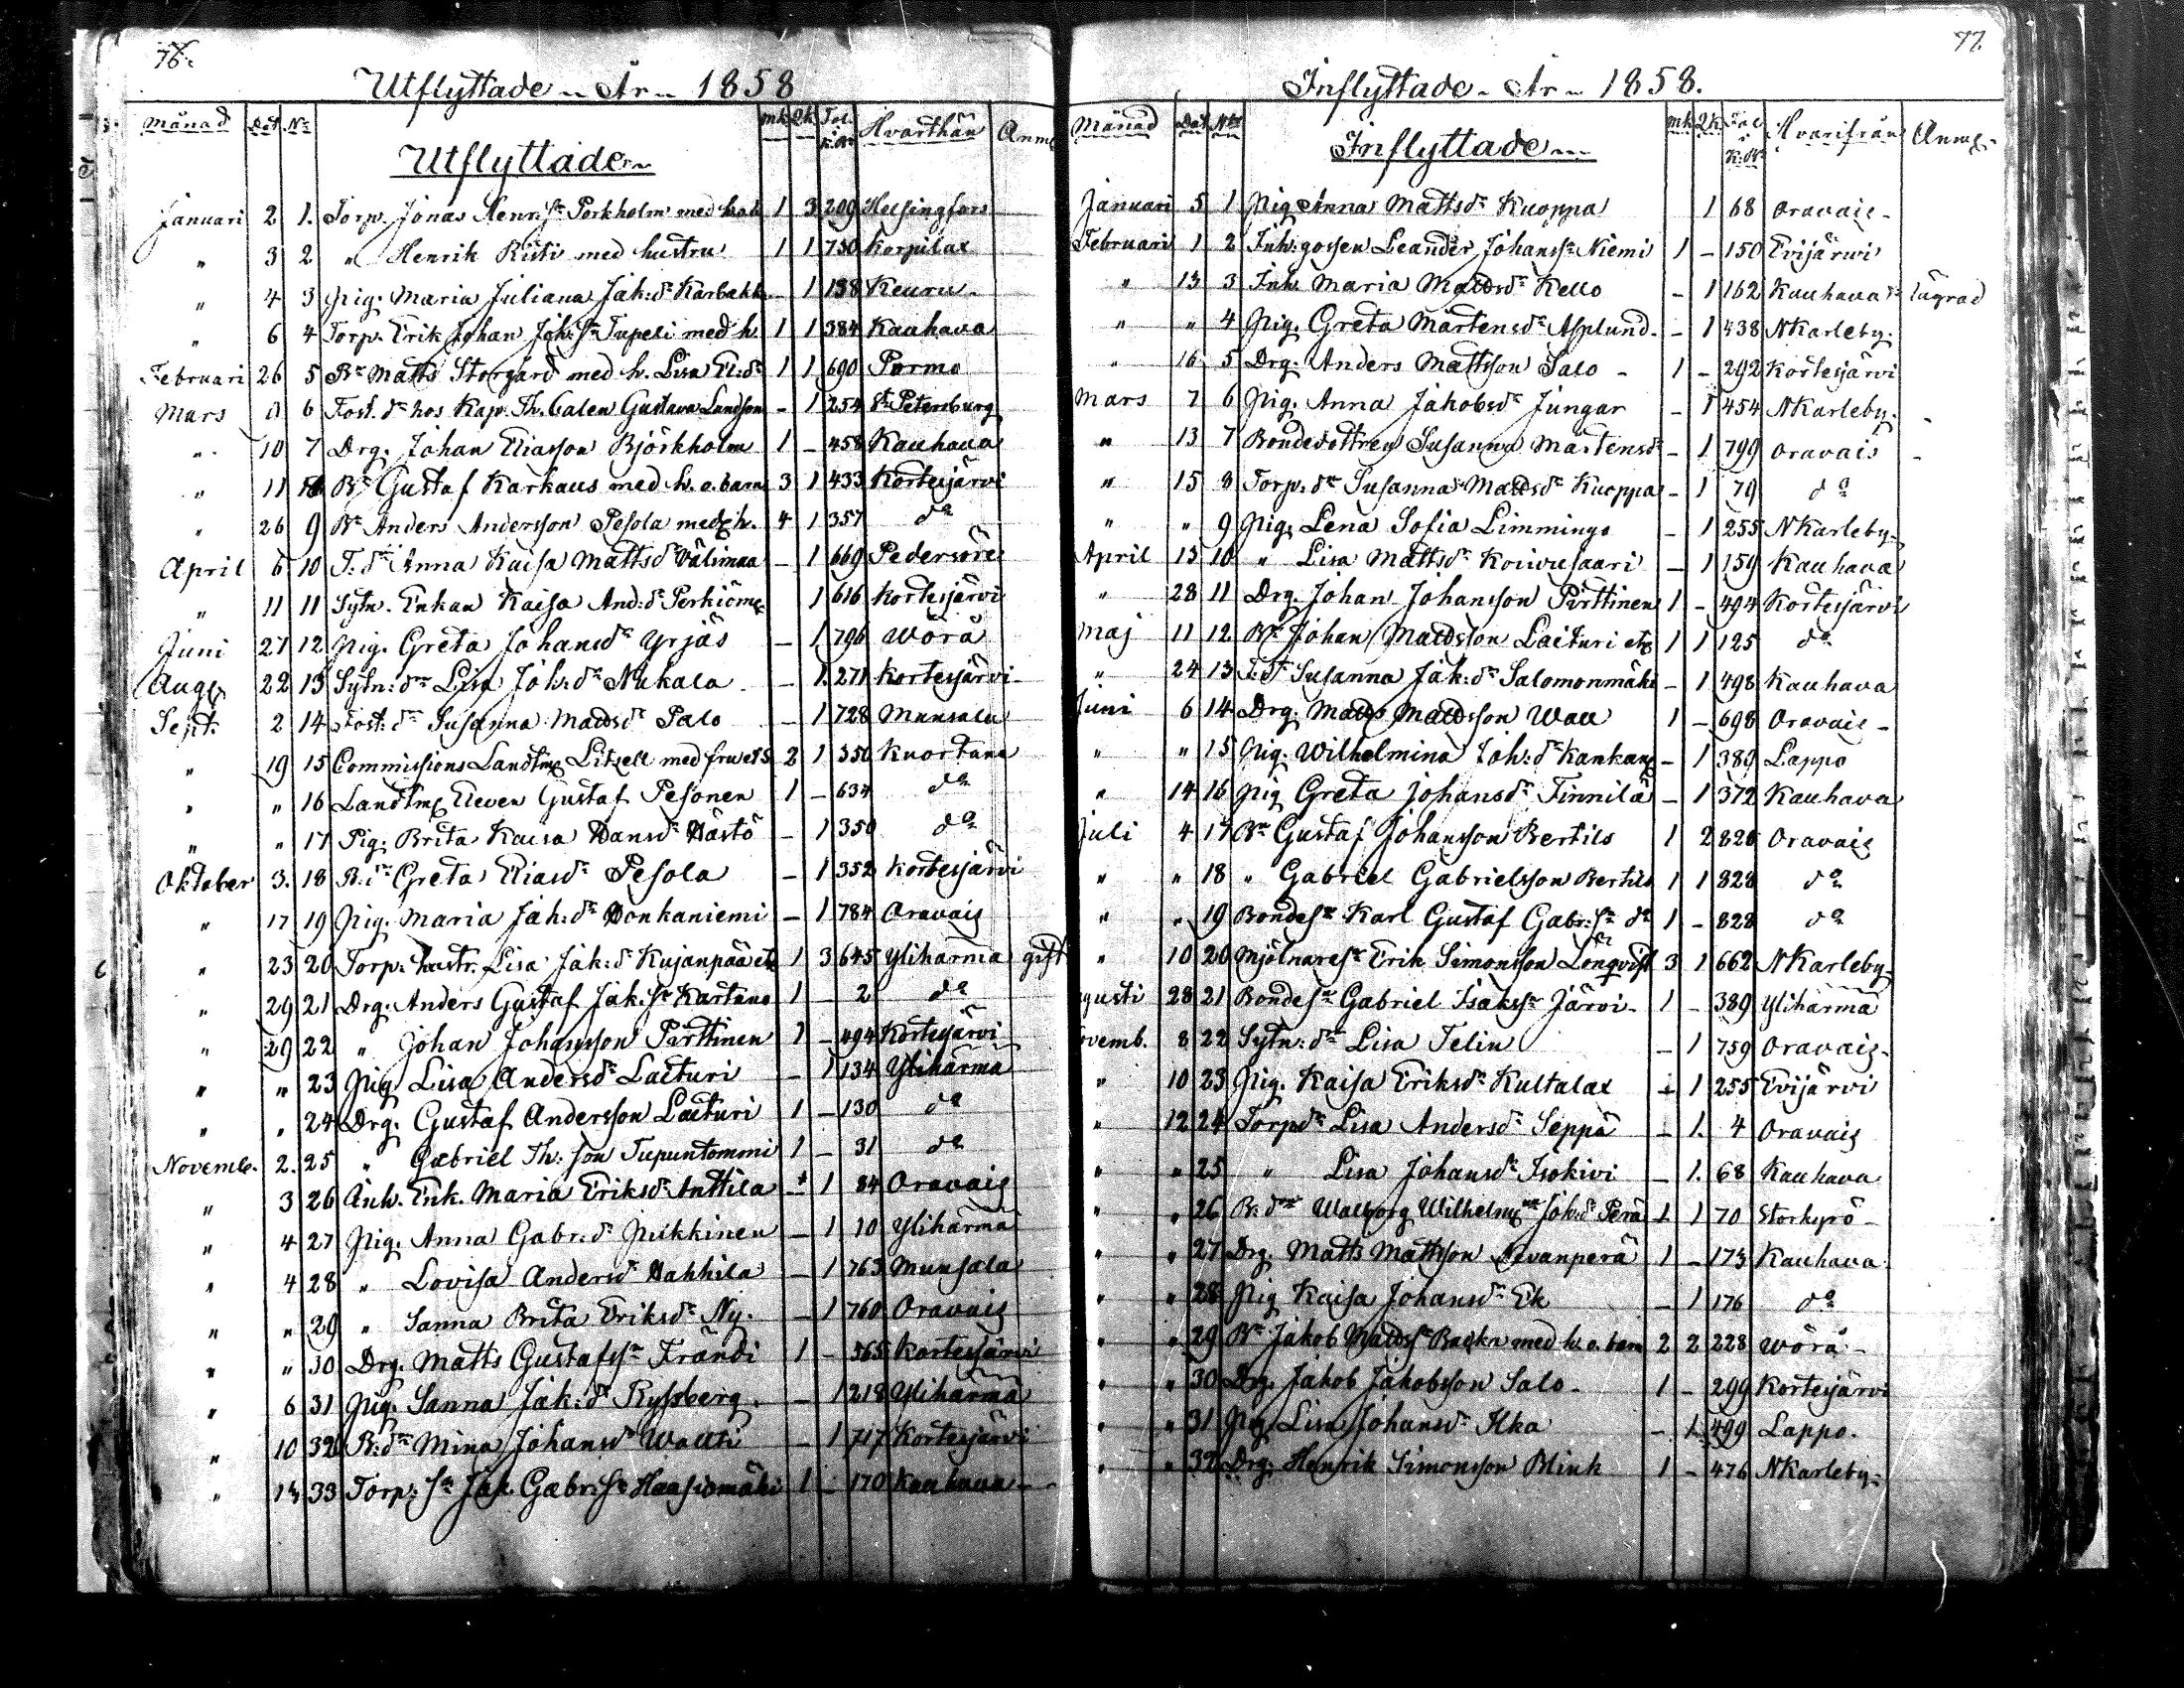 76.
Utflyttade År 1858
Månad Dat. No Utflyttade mk Qk Fol. i K.B. Hvarthän Anm.
Januari 2 1. Torp. Jonas Henr.sn Porkholm med 1 3 209 Helsingfors
" 3 2 " Henrik Risti med hustru 1 1 730 Korpilax
" 4 3 Pig. Maria Juliana Jak:dr - 1 138 Keuru
" 6 4 Torp. Erik Johan Joh:sn Tupeli med h. 1 1 384 Kauhava
Februari 26 5 Bn Matts Storgård med h. Lisa El:dr 1 1 690 Purmo
Mars 6 Fost. dr hos Kap. Th. Calen Gustava Landson - 1 254 St Petersburg
" 10 7 Drg. Johan Eliasson Björkholm 1 - 458 Kauhava
" 11 Bn Gustaf Karhaus med h. o. barn 3 1 433 Kortesjärvi
" 26 9 Bn Anders Andersson Pesola med h. 4 1 357 do
April 6 10 T. dr Anna Kaisa Mattsdr Välimaa - 1 669 Pedersöre
" 11 11 Sytn. Enkan Kaisa And:dr Perkiömä 1 616 Kortesjärvi
Juni 27 12 Pig. Greta Johansdr Yrjäs - 1 796 Wörå
Aug. 22 13 Sytn:dr Lisa Joh:dr Nukala - 1. 271 Kortesjärvi
Sept. 2 14 Fost:dr Susanna Mattsdr Palo - 1 728 Munsala
" 19 15 Commissions Landtm. Litzell med fru et S. 2 1 350 Kuortane
" " 16 Landtm. Eleven Gustaf Pesonen 1 - 634 do
" " 17 Pig. Brita Kaisa Hansdr Hästö - 1 350 do
Oktober 3. 18 B.dr Greta Eliasdr Pesola - 1 352 Kortesjärvi
" 17 19 Pig. Maria Jak:dr Honkaniemi - 1 784 Oravais
" 23 20 Torp. hustr. Lisa Jak:dr Kujanpää etc 1 3 645 Ylihärmä gift
" 29 21 Drg. Anders Gustaf Jak:sn Kartano 1 - 2 do
" 29 22 " Johan Johansson Pirttinen 1 - 494 Kortesjärvi
" " 23 Pig. Lisa Andersdr Laituri - 1 134 Ylihärmä
" " 24 Drg. Gustaf Andersson Laituri 1 - 130 do
Novemb. 2. 25 " Gabriel Th:son Tupuntommi 1 - 31 do
" 3 26 Inh. Enk. Maria Eriksdr Anttila - 1 84 Oravais
" 4 27 Pig. Anna Gabr:dr Pukkinen - 1 10 Ylihärmä
" 4 28 " Lovisa Andersdr Hahkila - 1 763 Munsala
" " 29 " Sanna Brita Eriksdr Ny. - 1 760 Oravais
" " 30 Drg. Matts Gustafssn Frändi 1 - 565 Kortesjärvi
" 6 31 Pig. Sanna Jak:dr Ryssberg - 1 218 Ylihärmä
" 10 32 B:dr Mina Johansdr Wautti - 1 717 Kortesjärvi
" 13 33 Torp:sn Jak. Gabr:sn Haasiomäki 1 - 170 Kauhava
77.
Inflyttade År 1858.
Månad Dat. No Inflyttade mk Qk Fol. i K:B. Hvarifrån Anm.
Januari 5 1 Pig. Anna Mattsdr Kuoppa 1 68 Oravais
Februari 1 2 Inh:gossen Leander Johanssn Niemi 1 - 150 Evijärvi
" 13 3 Inh. Maria Mattsdr Kello - 1 162 Kauhava
" " 4 Pig. Greta Mårtensdr Asplund - 1 438 NKarleby.
" 16 5 Drg. Anders Mattsson Salo - 1 - 292 Kortesjärvi
Mars 7 6 Pig. Anna Jakobsdr Jungar - 1 454 NKarleby.
" 13 7 Bondedottren Susanna Mårtensdr - 1 799 Oravais
" 15 8 Torp.dr Susanna Mattsdr Kuoppa - 1 79 do
" " 9 Pig. Lena Sofia Limmingo - 1 255 NKarleby
April 13 10 " Lisa Mattsdr Koivusaari - 1 159 Kauhava
" 28 11 Drg. Johan Johansson Pirttinen 1 - 494 Kortesjärvi
Maj 11 12 Bn Johan Mattsson Laituri etc 1 1 125 do
" 24 13 T.dr Susanna Jak:dr Salomonmäki - 1 498 Kauhava
Juni 6 14 Drg. Matts Mattsson Wall 1 - 698 Oravais
" " 15 Pig. Wilhelmina Joh:dr Kankan - 1 389 Lappo
" 14 16 Pig Greta Johansdr Tinnilä - 1 372 Kauhava
Juli 4 17 Bn Gustaf Johansson Bertils 1 2 828 Oravais
" " 18 " Gabriel Gabrielsson Bertils 1 1 828 do
" " 19 Bondesn Karl Gustaf Gabr:sn do 1 - 828 do
" 10 20 Mjölnaresn Erik Simonsson Lönqvist 3 1 662 NKarleby
gusti 28 21 Bondesn Gabriel Isakssn Järvi 1 - 389 Ylihärmä
ovemb. 8 22 Sytn:dr Lisa Telin - 1 759 Oravais
" 10 23 Pig. Kaisa Eriksdr Kultalax - 1 255 Evijärvi
" 12 24 Torpdr Lisa Andersdr Seppä - 1. 4 Oravais
" " 25 " Lisa Johansdr Isokivi - 1. 68 Kauhava
" " 26 B:dr Walborg Wilhelmina Joh:dr Perä 1 1 70 Storkyrö
" " 27 Drg. Matts Mattsson Luvanperä 1 - 173 Kauhava
" " 28 Pig Kaisa Johansdr Ek - 1 176 do
" " 29 Bn Jakob Mattssn Backa med h. o. barn 2 2 228 Wörå
" " 30 Drg. Jakob Jakobsson Salo 1 - 299 Kortesjärvi
" " 31 Pig. Lisa Johansdr Ilka - 1 499 Lappo.
" " 32 Drg. Henrik Simonsson Blink 1 - 476 NKarleby